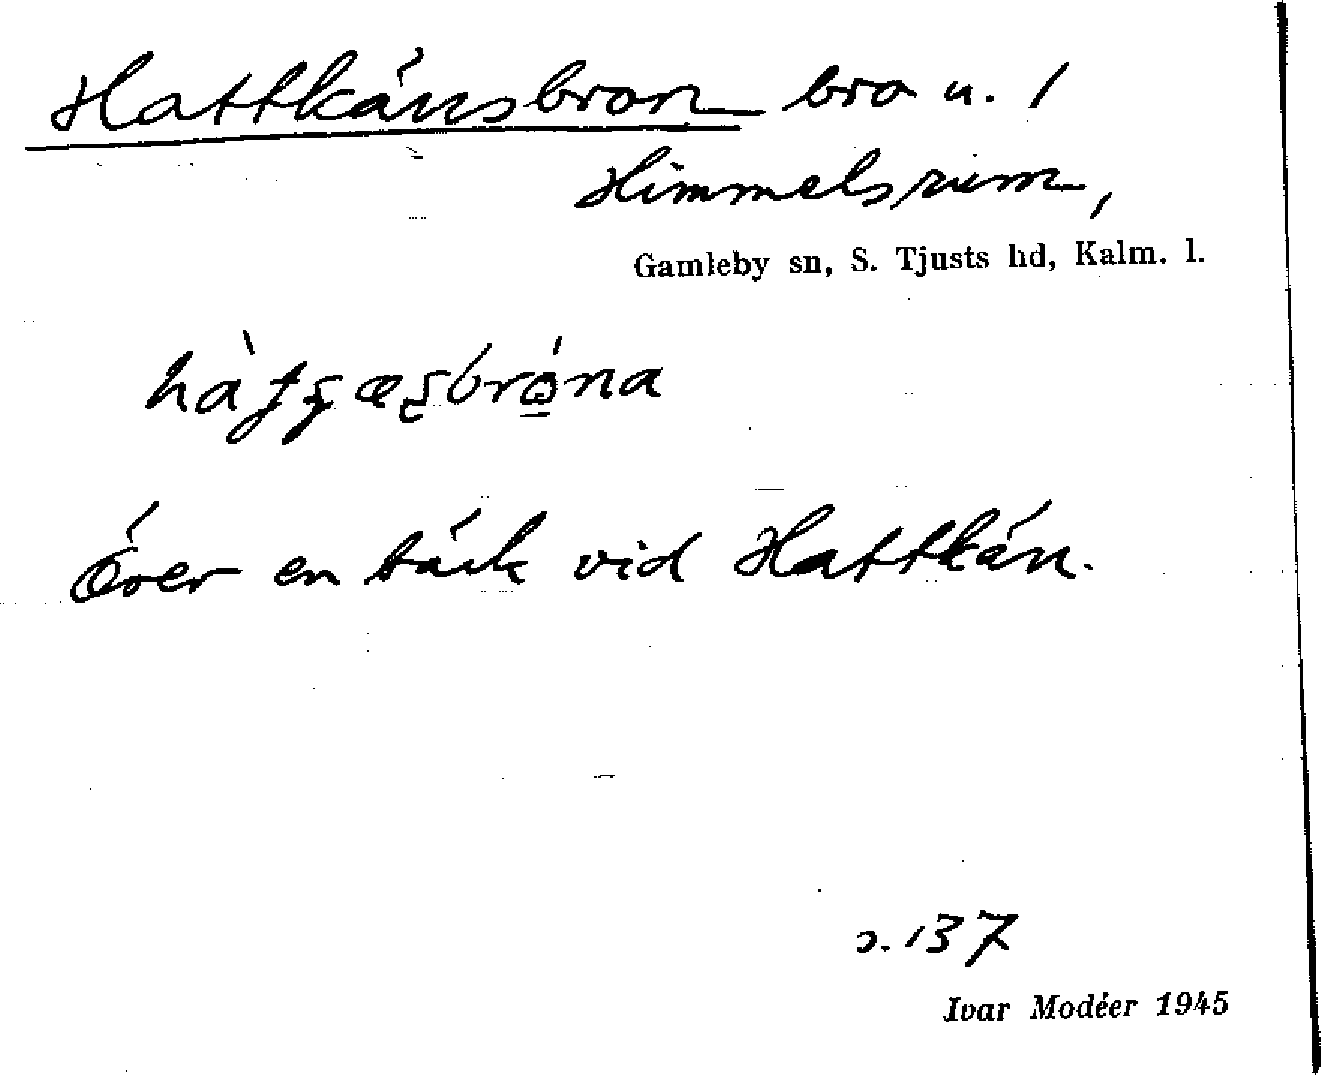 Hattkärrsbron bro u. 1
Himmelsrum,
Gamleby sn, S. Tjusts hd, Kalm. l.
Över en bäck vid Hattkärr.
s. 137
Ivar Modéer 1945